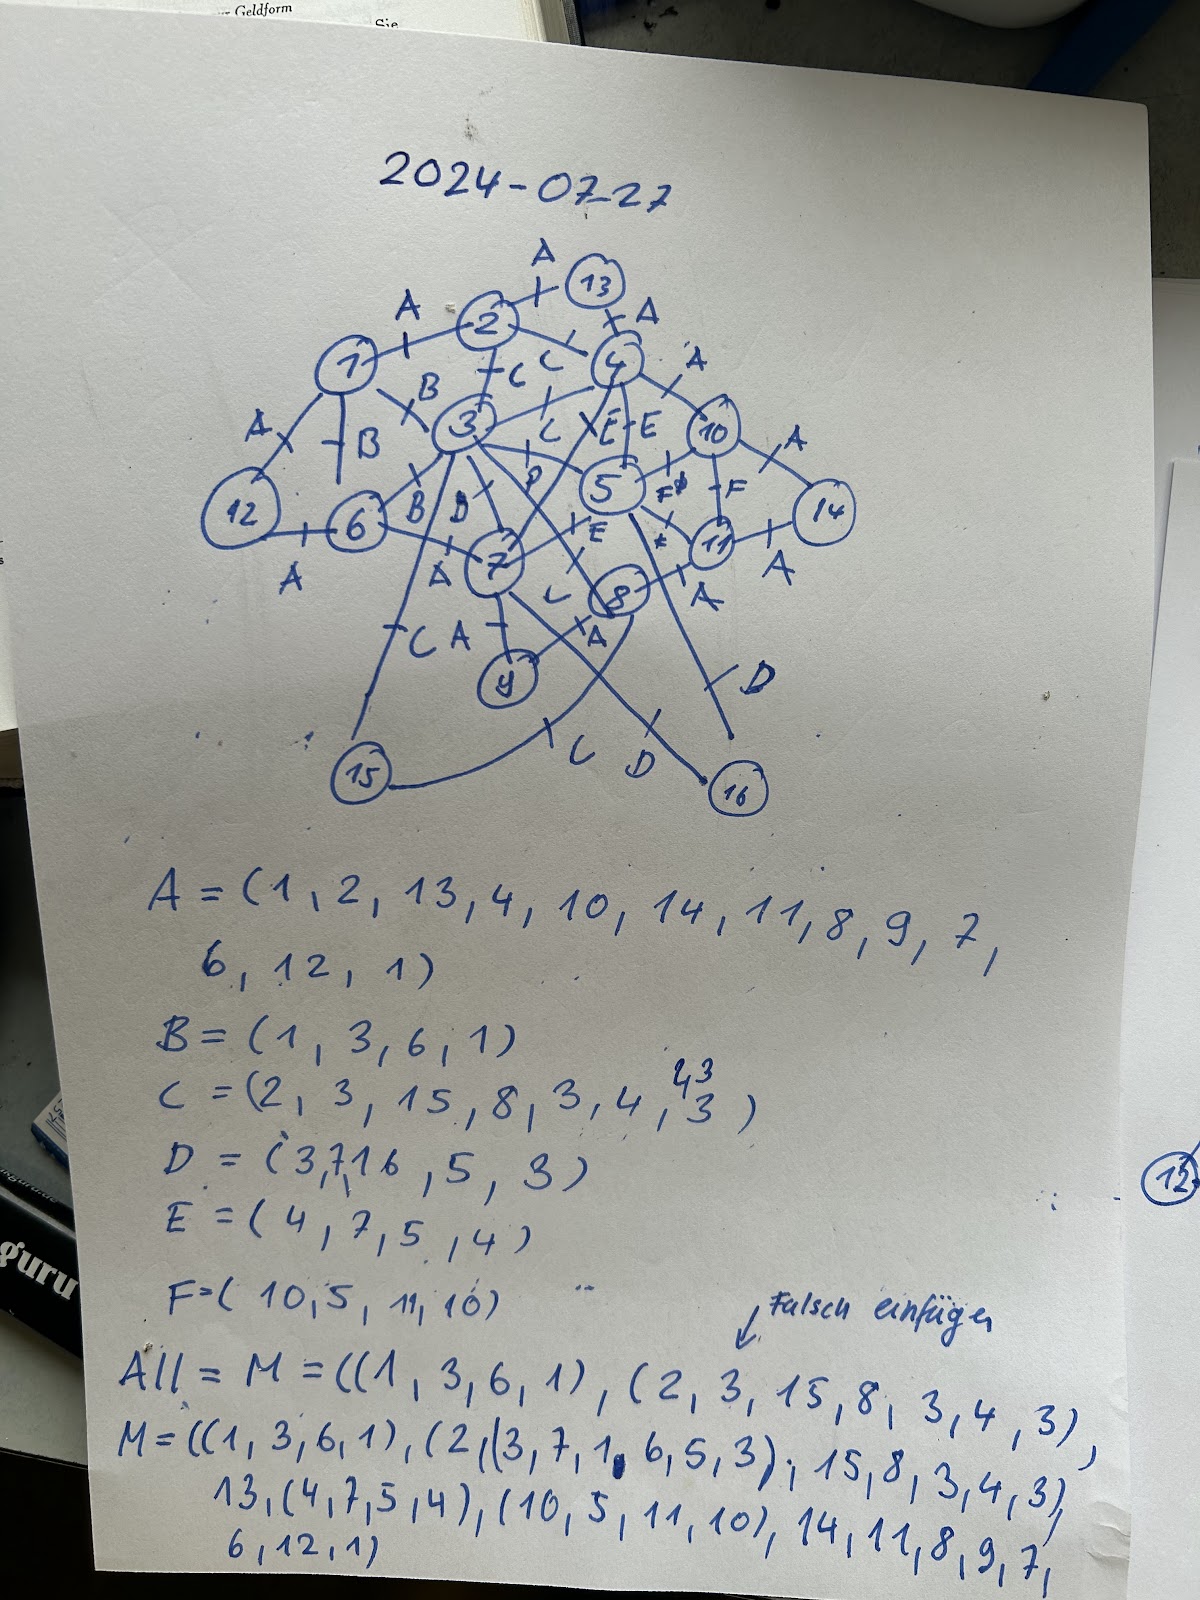 Geldform
Sie
2024-07-27
A
13
A
A
2
C
4
A
1
C
B
3
C
E
E
10
A
A
B
B
D
D
5
F
F
14
12
6
A
7
E
11
A
A
C
8
A
C
A
A
9
D
15
C
D
16
A = (1, 2, 13, 4, 10, 14, 11, 8, 9, 7,
6, 12, 1)
B = (1, 3, 6, 1)
2,3
C = (2, 3, 15, 8, 3, 4, 3)
12
D = (3,7,16, 5, 3)
E = (4, 7, 5, 4)
guru
F = (10, 5, 11, 10)
Falsch einfügen
All = M = ((1, 3, 6, 1), (2, 3, 15, 8, 3, 4, 3),
M = ((1, 3, 6, 1), (2, (3, 7, 1, 6, 5, 3), 15, 8, 3, 4, 3),
13, (4, 7, 5, 4), (10, 5, 11, 10), 14, 11, 8, 9, 7,
6, 12, 1)